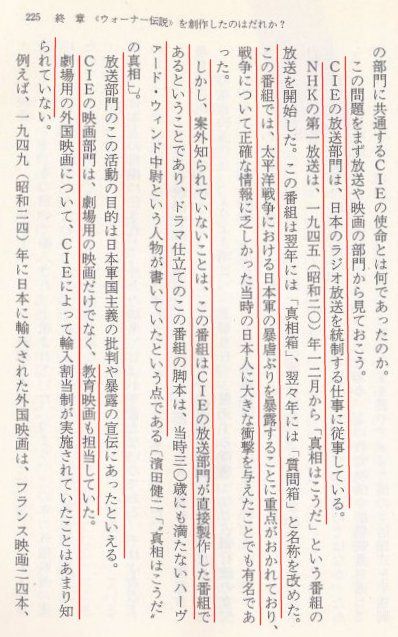 225 終章 《ウォーナー伝説》を創作したのはだれか?
の部門に共通するCIEの使命とは何であったのか。
この問題をまず放送や映画の部門から見ておこう。
CIEの放送部門は、日本のラジオ放送を統制する仕事に従事している。
NHKの第一放送は、一九四五(昭和二〇)年一二月から「真相はこうだ」という番組の
放送を開始した。この番組は翌年には「真相箱」、翌々年には「質問箱」と名称を改めた。
この番組では、太平洋戦争における日本軍の暴虐ぶりを暴露することに重点がおかれており、
戦争について正確な情報に乏しかった当時の日本人に大きな衝撃を与えたことでも有名であ
った。
しかし、案外知られていないことは、この番組はCIEの放送部門が直接製作した番組で
あるということであり、ドラマ仕立てのこの番組の脚本は、当時三〇歳にも満たないハーヴ
ァード・ウィンド中尉という人物が書いていたという点である〔濱田健二「"真相はこうだ"
の真相」〕。
放送部門のこの活動の目的は日本軍国主義の批判や暴露の宣伝にあったといえる。
CIEの映画部門は、劇場用の映画だけでなく、教育映画も担当していた。
劇場用の外国映画について、CIEによって輸入割当制が実施されていたことはあまり知
られていない。
例えば、一九四九(昭和二四)年に日本に輸入された外国映画は、フランス映画二四本、